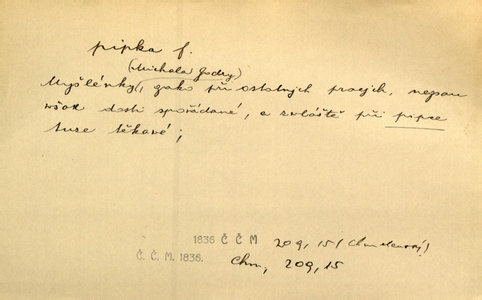 pipka f.
(Michala Godry)
Myšlénky, jako při ostatných pracjch, nejsau
však dosti spořádané, a zvláště při pipce
tuze těkavé;
1836 Č Č M 209, 15 (Chmelenský)
Č. Č. M. 1836.
Chm, 209, 15